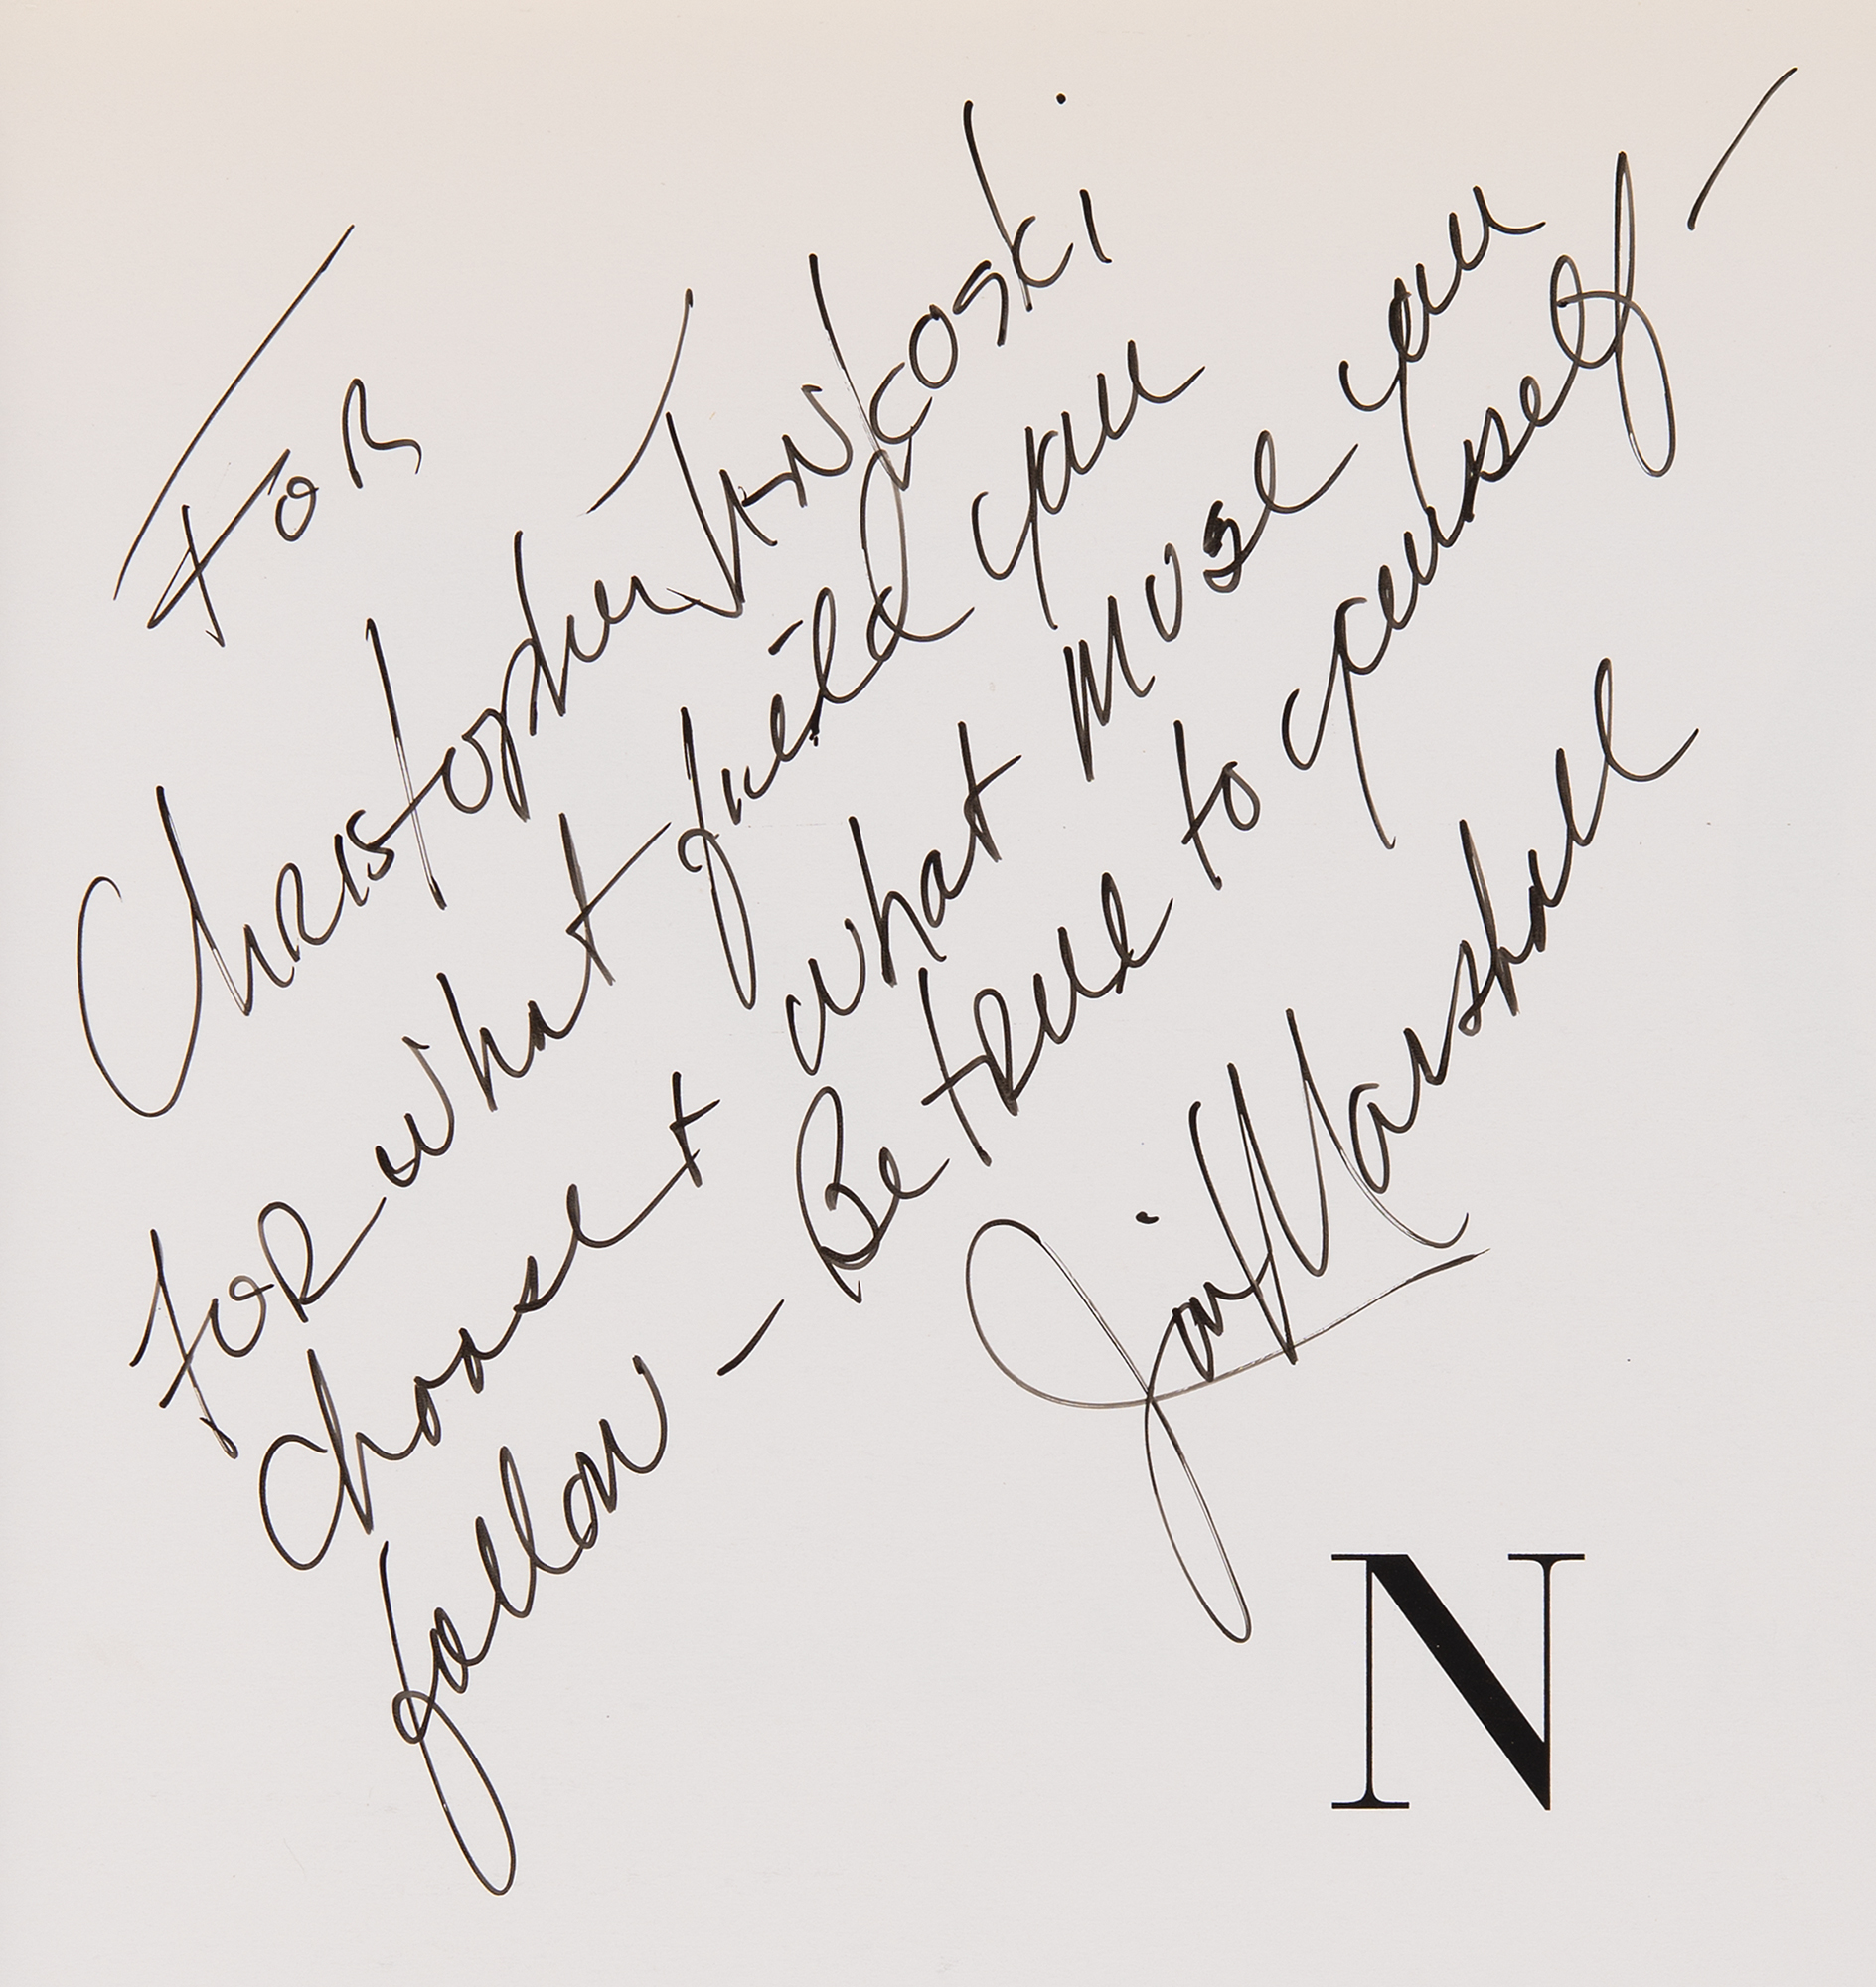 FOR
Christopher Jankoski
FOR what field you
choose + what muse you
follow — Be true to yourself —
Jim Marshall
N